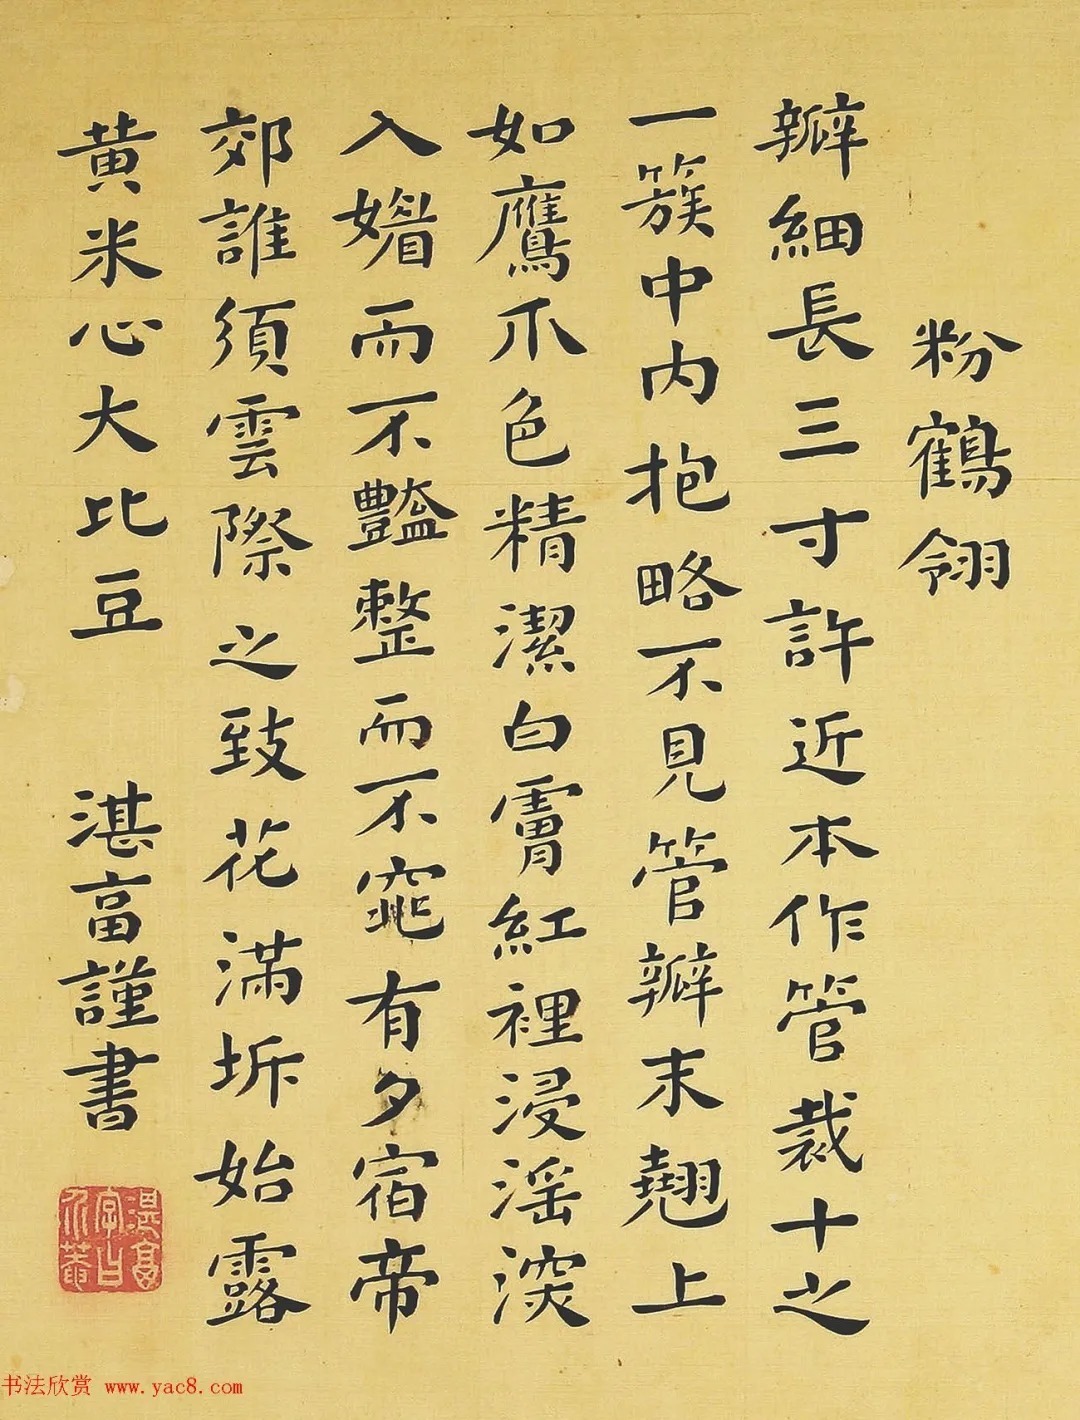 粉鶴翎
瓣細長三寸許近本作管裁十之
一簇中內抱略不見管瓣末翹上
如鷹爪色精潔白賣紅裡浸滛深
入媚而不豔整而不窕有夕宿帝
郊誰須雲際之致花滿坼始露
黃米心大比豆 湛富謹書
书法欣赏 www.yac8.com